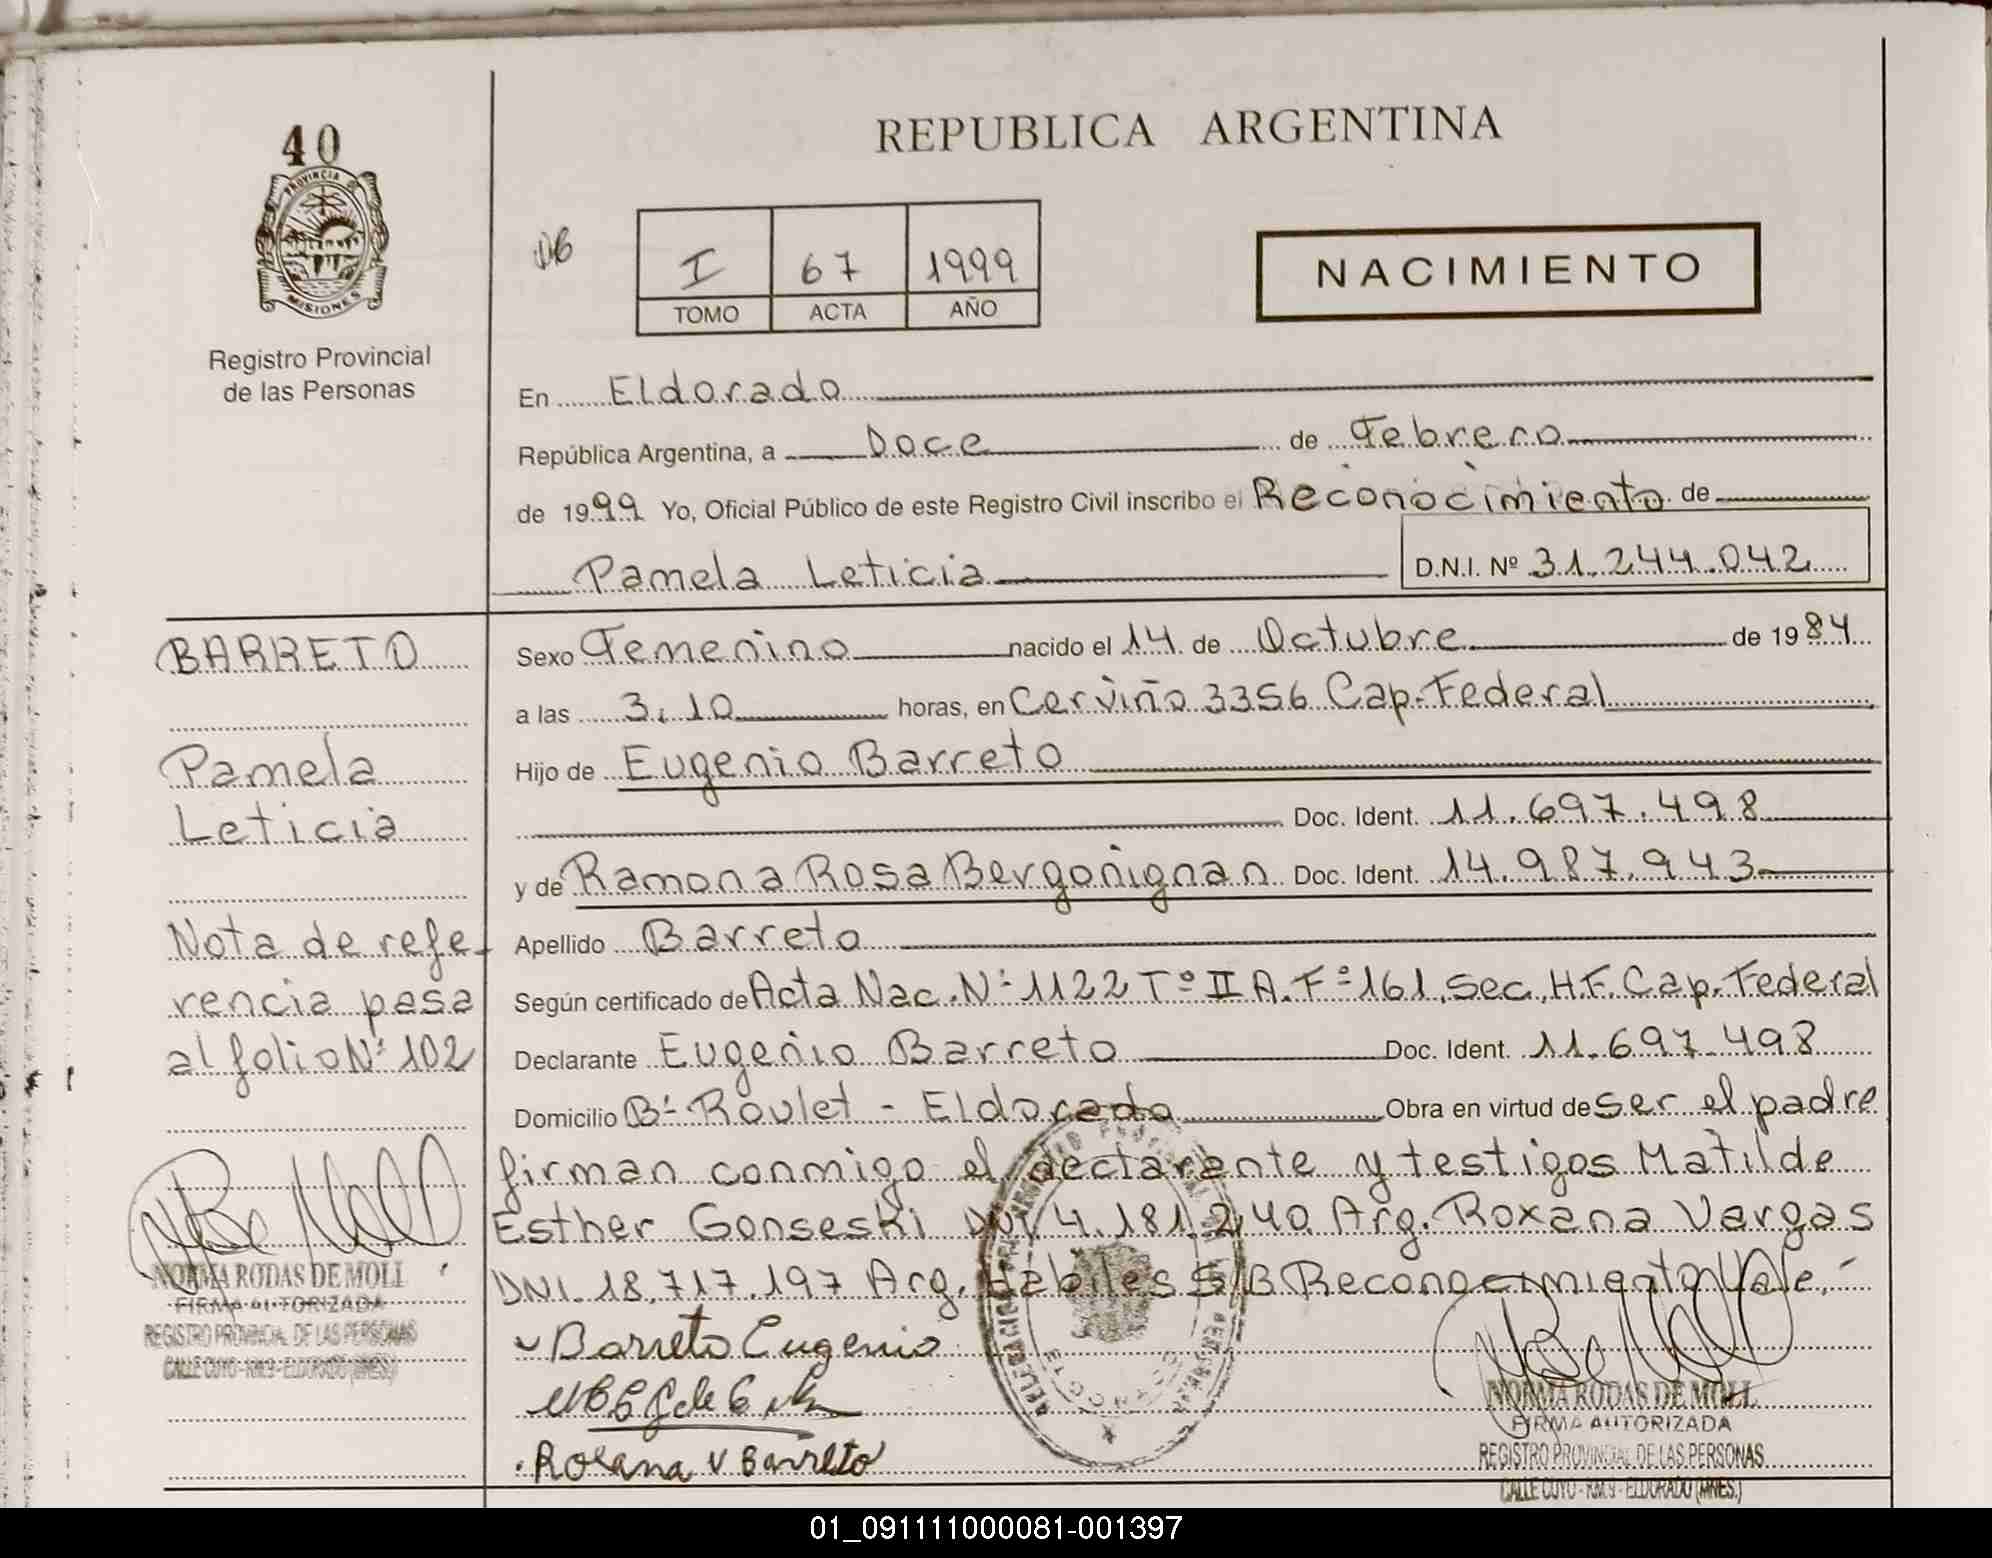 REPUBLICA ARGENTINA
40
PROVINCIA
MISIONES
Registro Provincial
de las Personas
I 67 1999
TOMO ACTA AÑO
NACIMIENTO
En Eldorado
República Argentina, a Doce de Febrero
de 1999 Yo, Oficial Público de este Registro Civil inscribo el Reconocimiento de
Pamela Leticia D.N.I. Nº 31.244.042
BARRETO
Pamela
Leticia
Nota de refe-
rencia pasa
al folio Nº 102
Sexo Femenino nacido el 14 de Octubre de 1984
a las 3,10 horas, en Cerviño 3356 Cap. Federal
Hijo de Eugenio Barreto
Doc. Ident. 11.697.498
y de Ramona Rosa Bergoñignan Doc. Ident. 14.987.943
Apellido Barreto
Según certificado de Acta Nac. Nº 1122 Tº II A. Fº 161, Sec, H.F. Cap. Federal
Declarante Eugenio Barreto Doc. Ident. 11.697.498
Domicilio Bº Roulet - Eldorado Obra en virtud de ser el padre
firman conmigo el declarante y testigos Matilde
Esther Gonseski DNI 4.181.240 Arg. Roxana Vargas
DNI. 18.717.197 Arg. Habiles S/B Reconocimiento Vale.
Barreto Eugenio
Roxana V Barreto
NORMA RODAS DE MOLL
FIRMA AUTORIZADA
REGISTRO PROVINCIAL DE LAS PERSONAS
CALLE CUYO - KM.9 - ELDORADO (MNES.)
NORMA RODAS DE MOLL
FIRMA AUTORIZADA
REGISTRO PROVINCIAL DE LAS PERSONAS
CALLE CUYO - KM.9 - ELDORADO (MNES.)
01_091111000081-001397